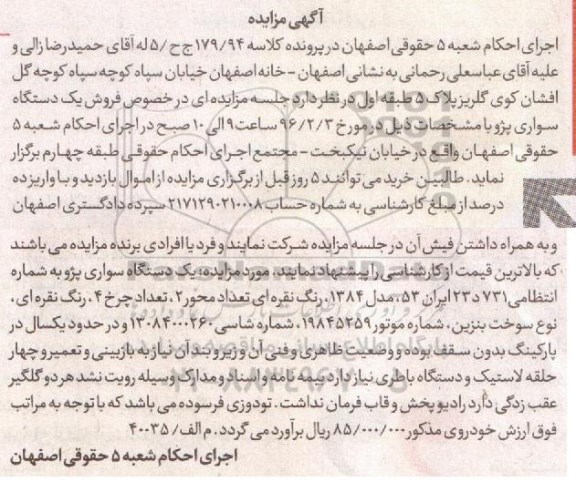 آگهی مزایده
اجرای احکام شعبه ۵ حقوقی اصفهان در پرونده کلاسه ۱۷۹/۹۴ ج ح /۵ له آقای حمیدرضا زالی و
علیه آقای عباسعلی رحمانی به نشانی اصفهان - خانه اصفهان خیابان سپاه کوچه سپاه کوچه گل
افشان کوی گلریز پلاک ۵ طبقه اول در نظر دارد جلسه مزایده ای در خصوص فروش یک دستگاه
سواری پژو با مشخصات ذیل در مورخ ۹۶/۲/۳ ساعت ۹ الی ۱۰ صبح در اجرای احکام شعبه ۵
حقوقی اصفهان واقع در خیابان نیکبخت - مجتمع اجرای احکام حقوقی طبقه چهارم برگزار
نماید. طالبین خرید می توانند ۵ روز قبل از برگزاری مزایده از اموال بازدید و با واریز ده
درصد از مبلغ کارشناسی به شماره حساب ۲۱۷۱۲۹۰۲۱۰۰۰۸ سپرده دادگستری اصفهان
و به همراه داشتن فیش آن در جلسه مزایده شرکت نمایند و فرد یا افرادی برنده مزایده می باشند
که بالاترین قیمت از کارشناسی را پیشنهاد نمایند. مورد مزایده: یک دستگاه سواری پژو به شماره
انتظامی ۷۳۱ د ۲۳ ایران ۵۳، مدل ۱۳۸۴، رنگ نقره ای تعداد محور ۲، تعداد چرخ ۴، رنگ نقره ای،
نوع سوخت بنزین، شماره موتور ۱۹۸۴۵۲۵۹، شماره شاسی ۱۳۰۸۴۰۰۰۲۶۰ و در حدود یکسال در
پارکینگ بدون سقف بوده و وضعیت ظاهری و فنی آن و زیروبند آن نیاز به بازبینی و تعمیر و چهار
حلقه لاستیک و دستگاه باطری نیاز دارد بیمه نامه اعتبار و مدارک وسیله رویت نشد هر دو گلگیر
عقب زدگی دارد رادیو پخش و قاب فرمان نداشت. تودوزی فرسوده می باشد که با توجه به مراتب
فوق ارزش خودروی مذکور ۸۵/۰۰۰/۰۰۰ ریال برآورد می گردد. م الف/ ۴۰۰۳۵
اجرای احکام شعبه ۵ حقوقی اصفهان